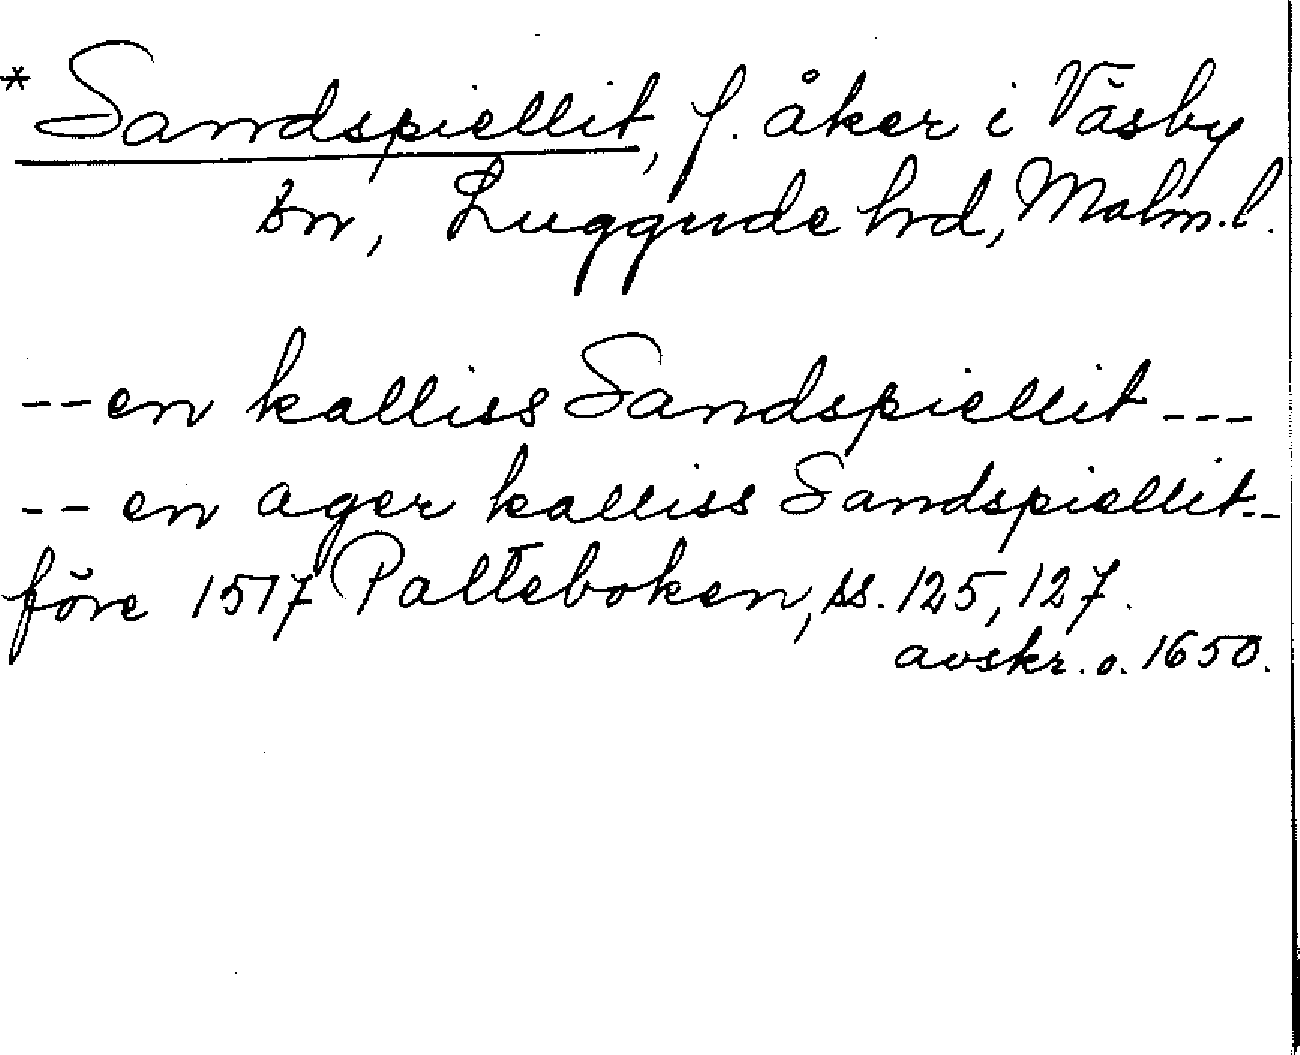 * Sandspiellit, f. åker i Väsby
sn, Luggude hrd, Malm.l.
-- en kalliss Sandspiellit ---
-- en ager kalliss Sandspiellit --
före 1517 Palteboken, ss. 125, 127.
avskr. o. 1650.